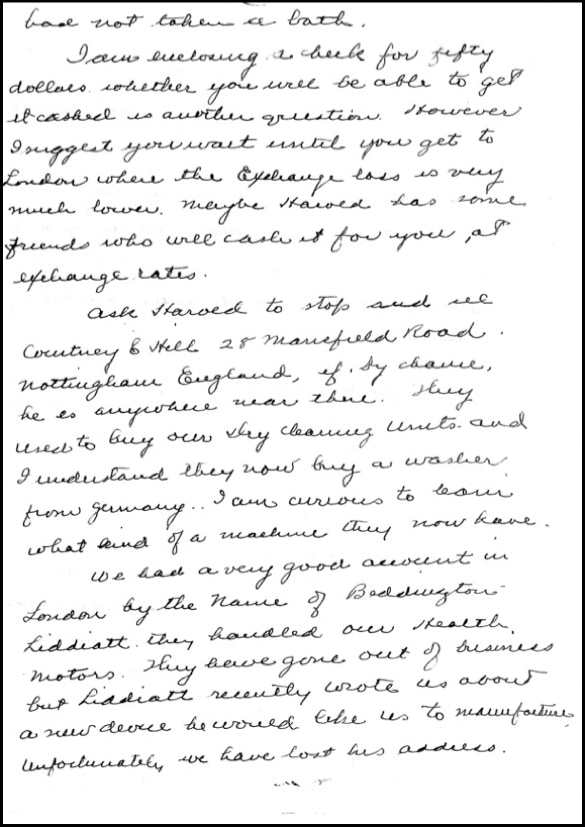 had not taken a bath.
I am enclosing a check for fifty
dollars. whether you will be able to get
it cashed is another question. However
I suggest you wait until you get to
London where the Exchange loss is very
much lower. Maybe Harold has some
friends who will cash it for you, at
exchange rates.
Ask Harold to stop and see
Courtney & Hill 28 Mansfield Road.
Nottingham England, if, by chance,
he is anywhere near there. They
used to buy our dry cleaning units and
I understand they now buy a washer
from Germany.. I am curious to learn
what kind of a machine they now have.
We had a very good account in
London by the Name of Beddington
Liddiatt. they handled our Health
Motors. They have gone out of business
but Liddiatt recently wrote us about
a new device he would like us to manufacture
Unfortunately, we have lost his address.